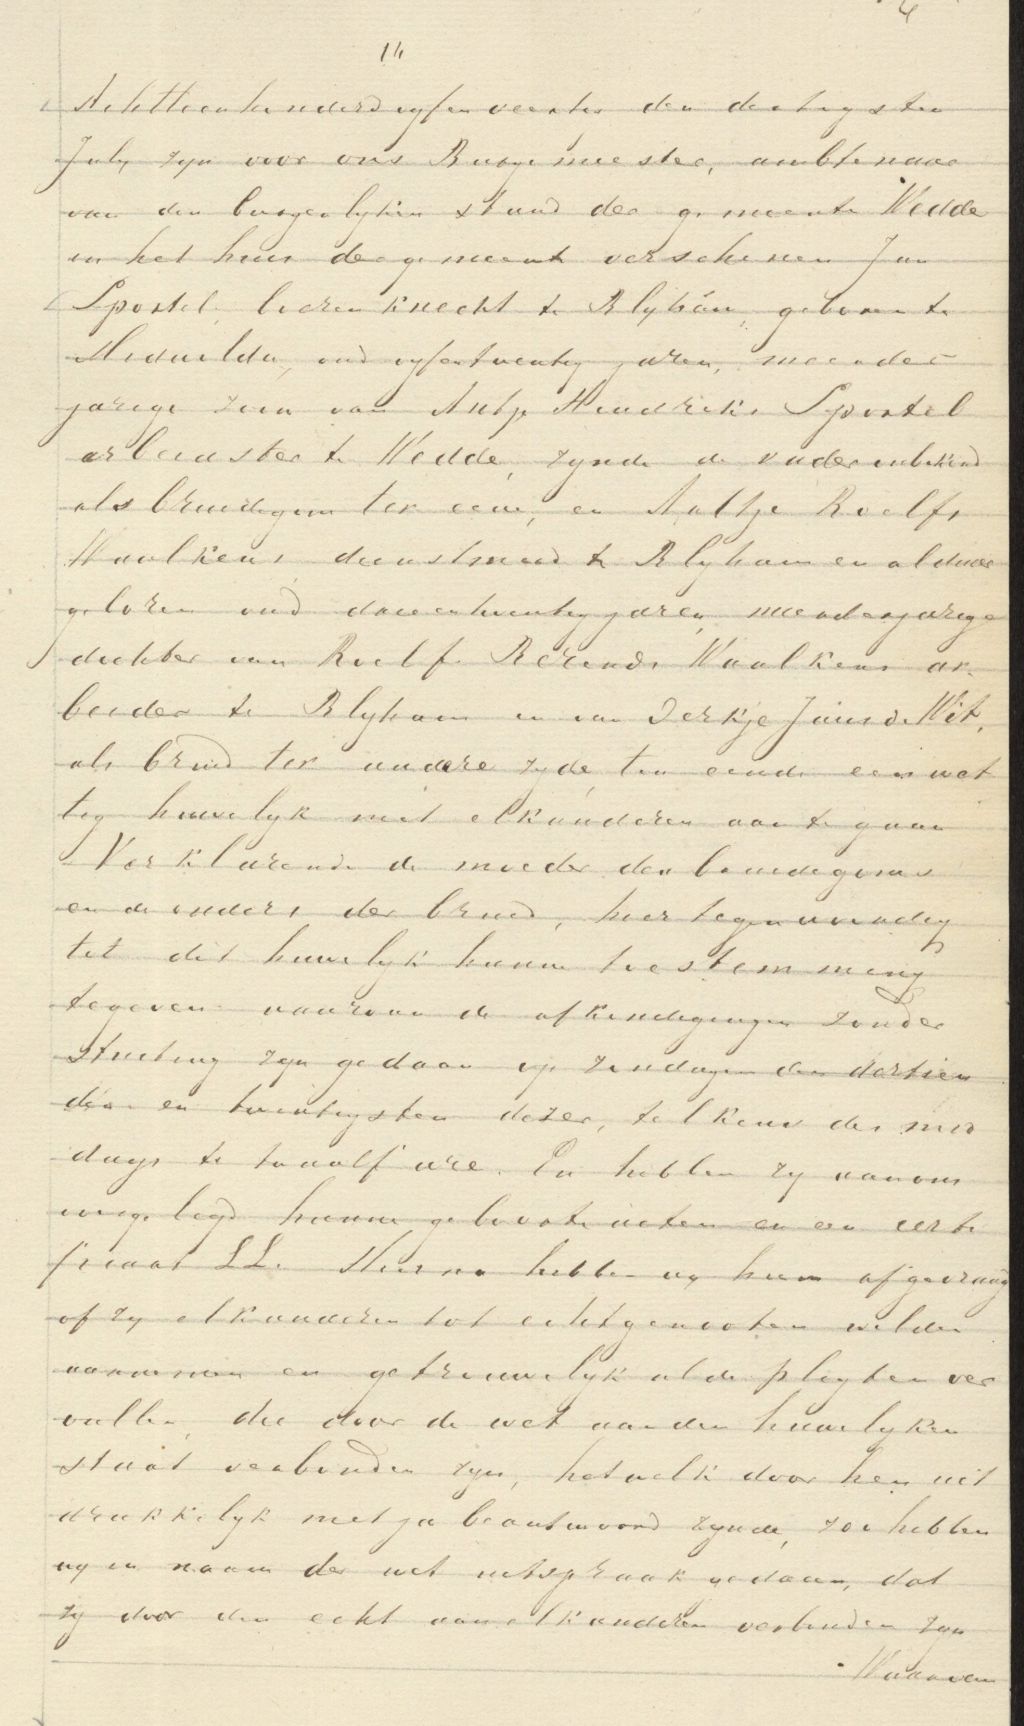 14
Achttienhonderdvyfenveertig den dertigsten
July zyn voor ons Burgemeester, ambtenaar
van den burgerlyken stand der gemeente Wedde
in het huis der gemeente verschenen Jan
Spostel, boerenknecht te Blyham, geboren te
Midwolda, oud vyfentwintig jaren, meerder
jarige zoon van Antje Hendriks Spostel
arbeidster te Wedde, zynde de vader onbekend
als bruidegom ter eene, en Aaltje Roelfs
Waalkens dienstmeid te Blyham en aldaar
geboren oud drieentwintig jaren, meerderjarige
dochter van Roelf Berends Waalkens ar-
beider te Blyham en van Derkje Jans de Wit,
als bruid ter andere zyde, ten einde een wet
tig huwelyk met elkanderen aan te gaan
Verklarende de moeder des bruidegoms
en de ouders der bruid, hier tegenwoordig
tot dit huwelyk hunne toestemming
tegeven waarvan de afkondigingen zonder
stuiting zyn gedaan op zondagen den dertien
den en twintigsten dezer, telkens des mid
dags te twaalf ure. En hebben zy aan ons
overgelegd hunne geboorteacten en een certi
ficaat LL. Hierna hebben wy hun afgevraagd
of zy elkanderen tot echtgenooten wilden
aannemen en getrouwelyk al de plegten ver
vullen, die door de wet aan den huwelyken
staat verbonden zyn, hetwelk door hen uit
drukkelyk met ja beantwoord zynde, zoo hebben
wy in naam der wet uitspraak gedaan, dat
zy door den echt aan elkanderen verbonden zyn
Waarvan